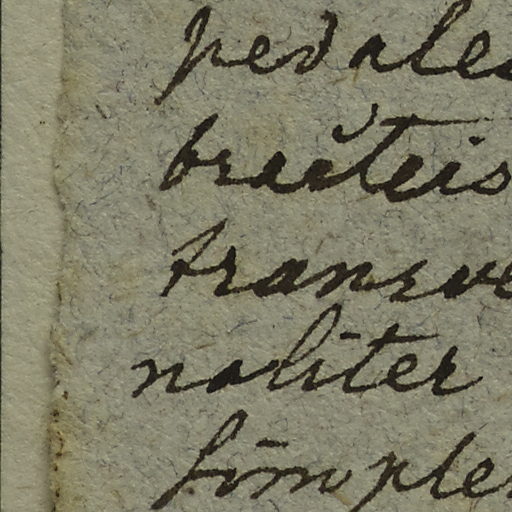 pedales
bracteis
transve
naliter
simple